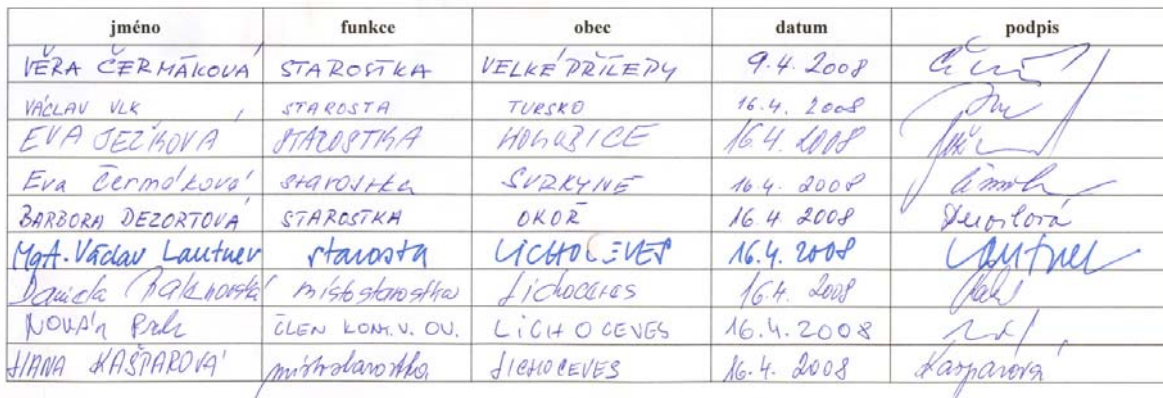 jméno funkce obec datum podpis
VĚRA ČERMÁKOVÁ STAROSTKA VELKÉ PŘÍLEPY 9.4.2008
VÁCLAV VLK STAROSTA TURSKO 16.4. 2008
EVA JEZÍKOVÁ STAROSTKA HOLUBICE 16.4. 2008
Eva Čermáková starostka SVRKYNĚ 16.4. 2008
BARBORA DEZORTOVÁ STAROSTKA OKOŘ 16.4 2008 Dezortová
MgA. Václav Lautner starosta LICHOCEVES 16.4. 2008 Lautner
Daniela místostarostka Lichoceves 16.4. 2008
NOVÁK ČLEN KONT.V. OV. LICHOCEVES 16.4.2008
HANA KAŠPAROVÁ místostarostka LICHOCEVES 16.4. 2008 Kašparová